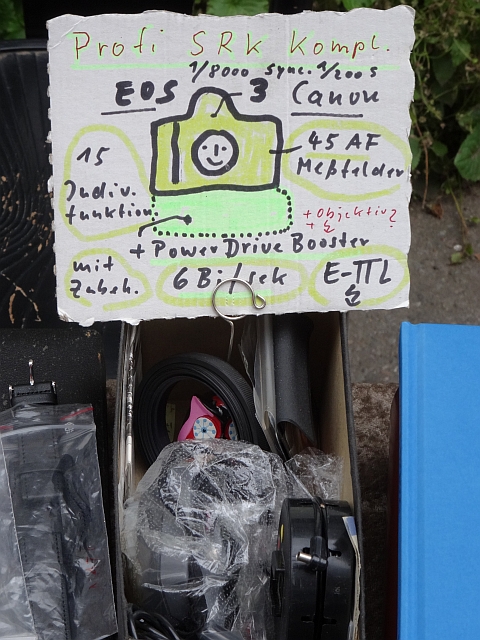 Profi SRK kompl.
1/8000 sync. 1/200s
EOS 3 Canon
45 AF
Meßfelder
15
Indiv.
funktion.
+ Objektiv?
+
+ Power Drive Booster
mit
Zubeh.
6 Bi/sek
E-TTL